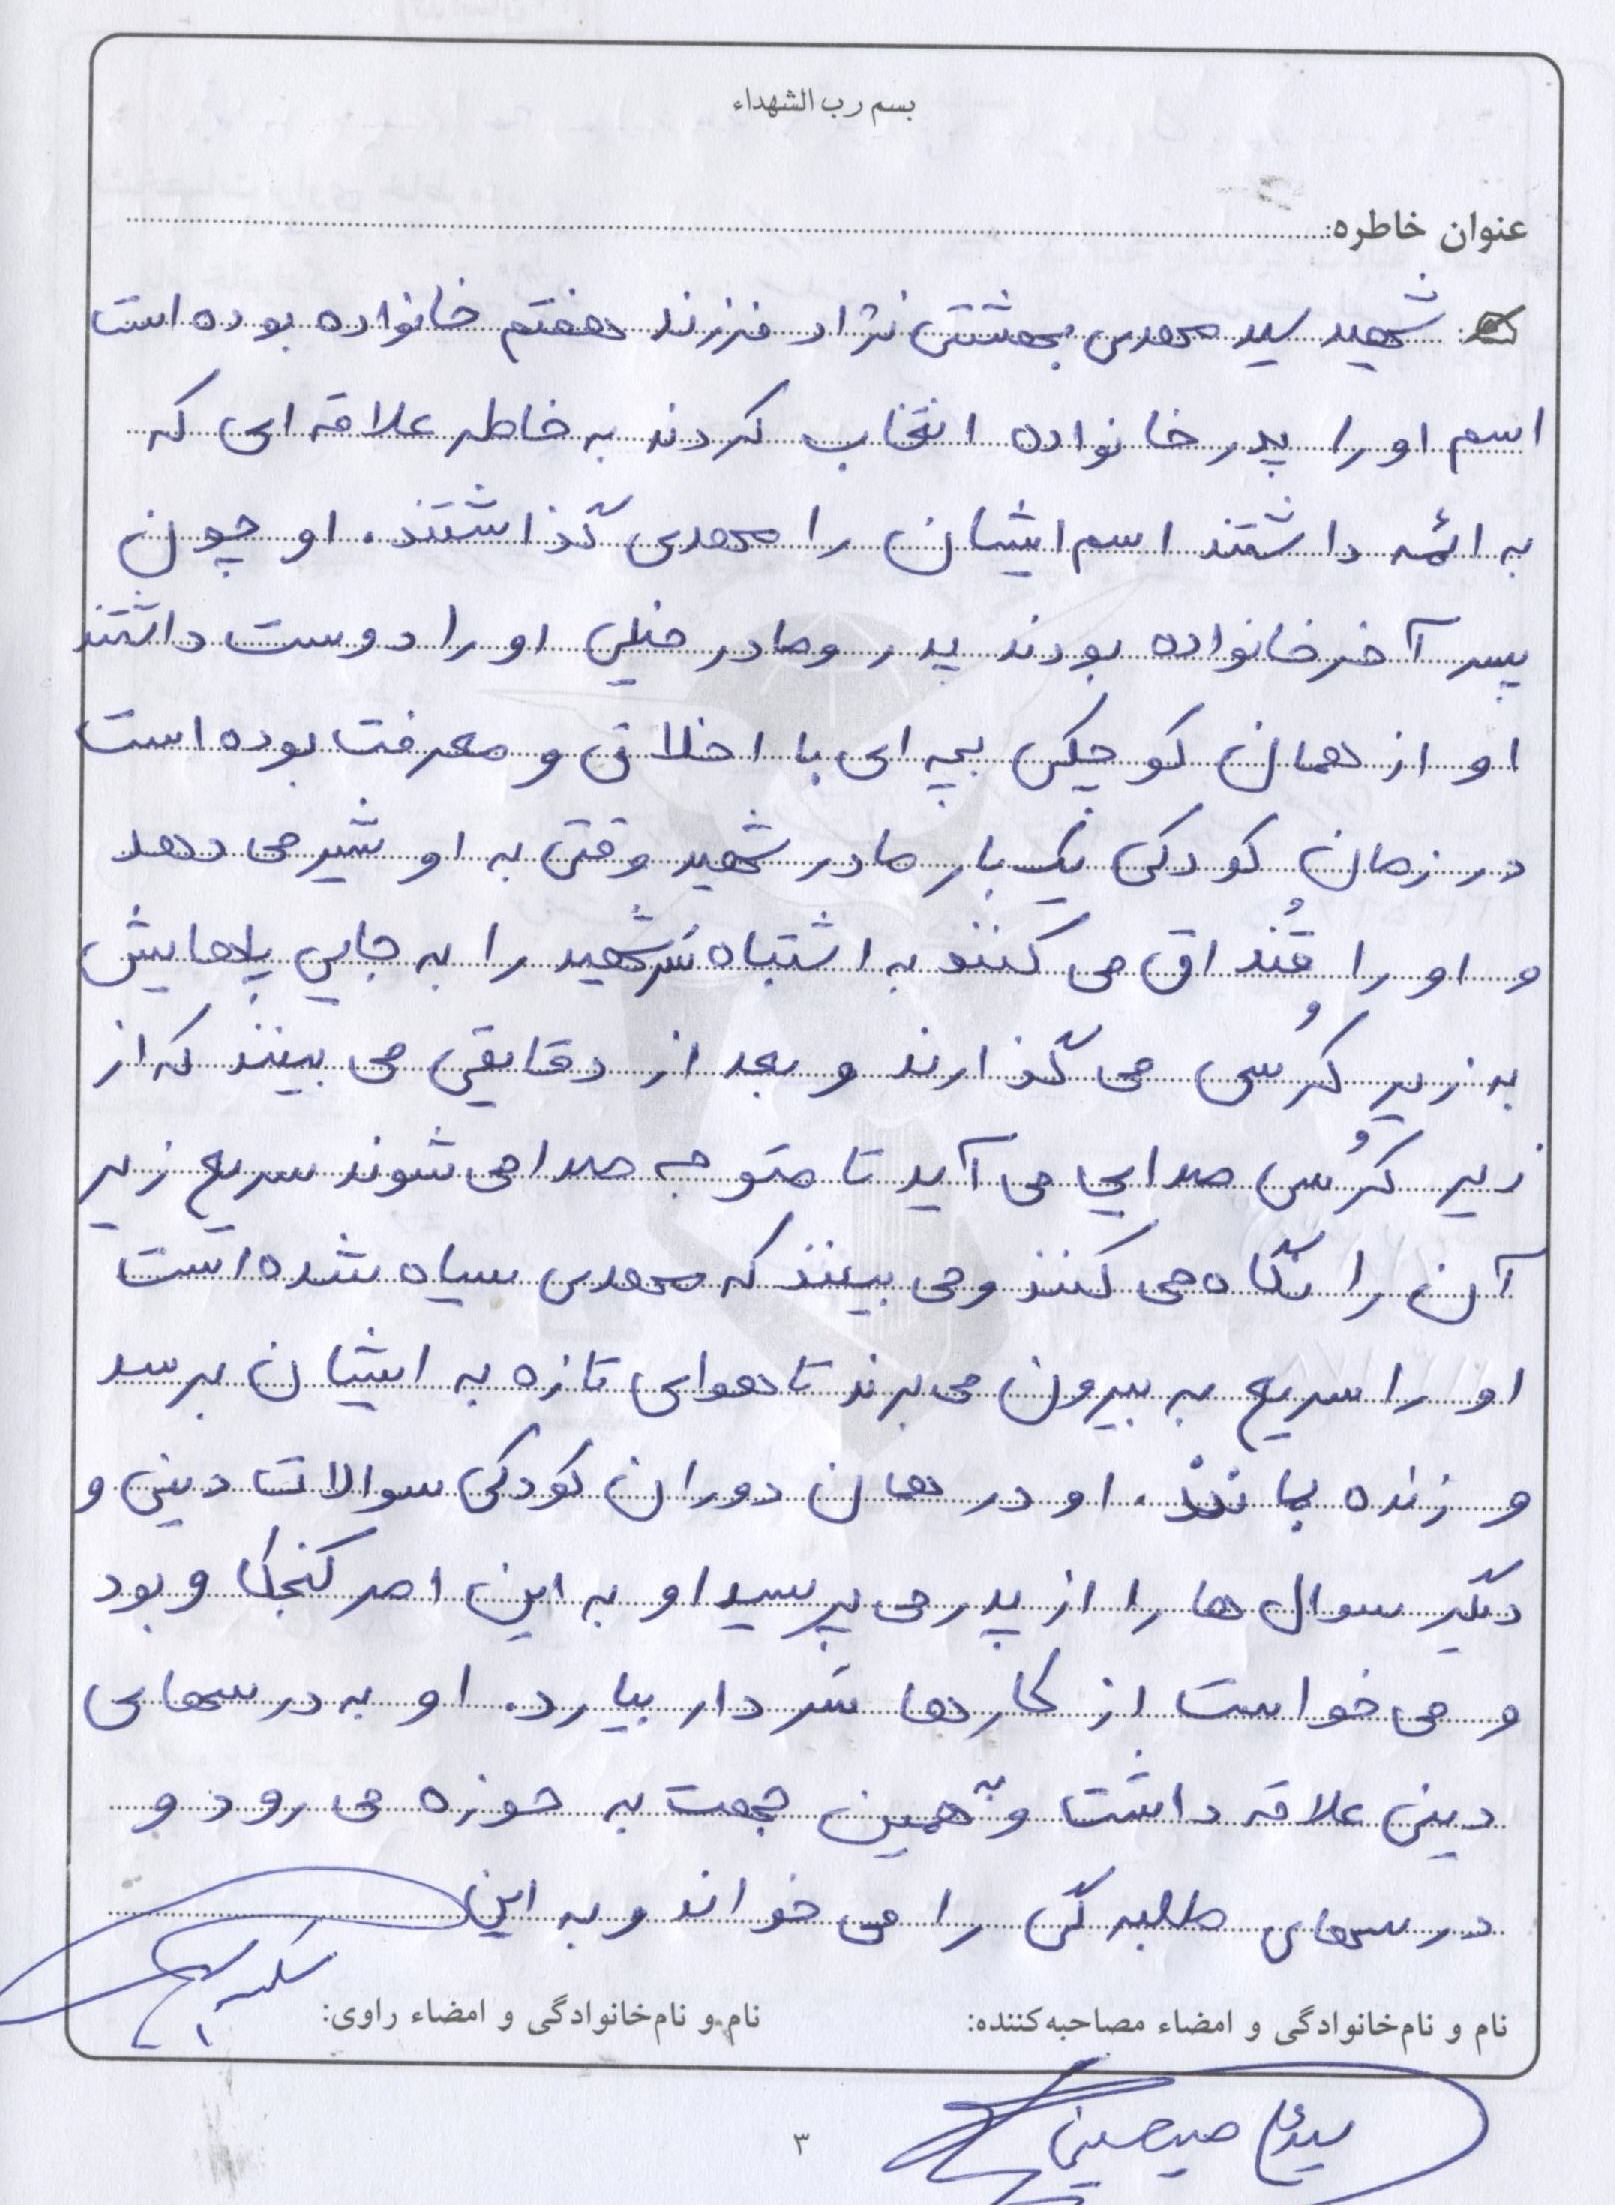 بسم رب الشهداء
عنوان خاطره:
شهید سید مهدی بهشتی نژاد فرزند هفتم خانواده بوده است
اسم او را پدر خانواده انتخاب کردند به خاطر علاقه ای که
به ائمه داشتند اسم ایشان را مهدی گذاشتند. او چون
پسر آخر خانواده بودند پدر و مادر خیلی او را دوست داشتند
او از همان کوچکی بچه ای با اخلاق و معرفت بوده است
در زمان کودکی یک بار مادر شهید وقتی به او شیر می دهد
و او را قُنداق می کنند به اشتباه سَر شهید را به جایِ پاهایش
به زیر کُرسی می گذارند و بعد از دقایقی می بینند که از
زیر کُرسی صدایی می آید تا متوجه صدا می شوند سریع زیر
آن را نگاه می کنند و می بینند که مهدی سیاه شده است
او را سریع به بیرون می برند تا هوای تازه به ایشان برسد
و زنده بماند. او در همان دوران کودکی سوالات دینی و
دیگر سوال ها را از پدر می پرسید او به این امر کنجکاو بود
و می خواست از کارها سَر دار بیارد. او به درسهای
دینی علاقه داشت و به همین جهت به حوزه می رود و
درسهای طلبه گی را می خواند و به این
نام و نام‌خانوادگی و امضاء مصاحبه‌کننده:
نام و نام‌خانوادگی و امضاء راوی:
۳